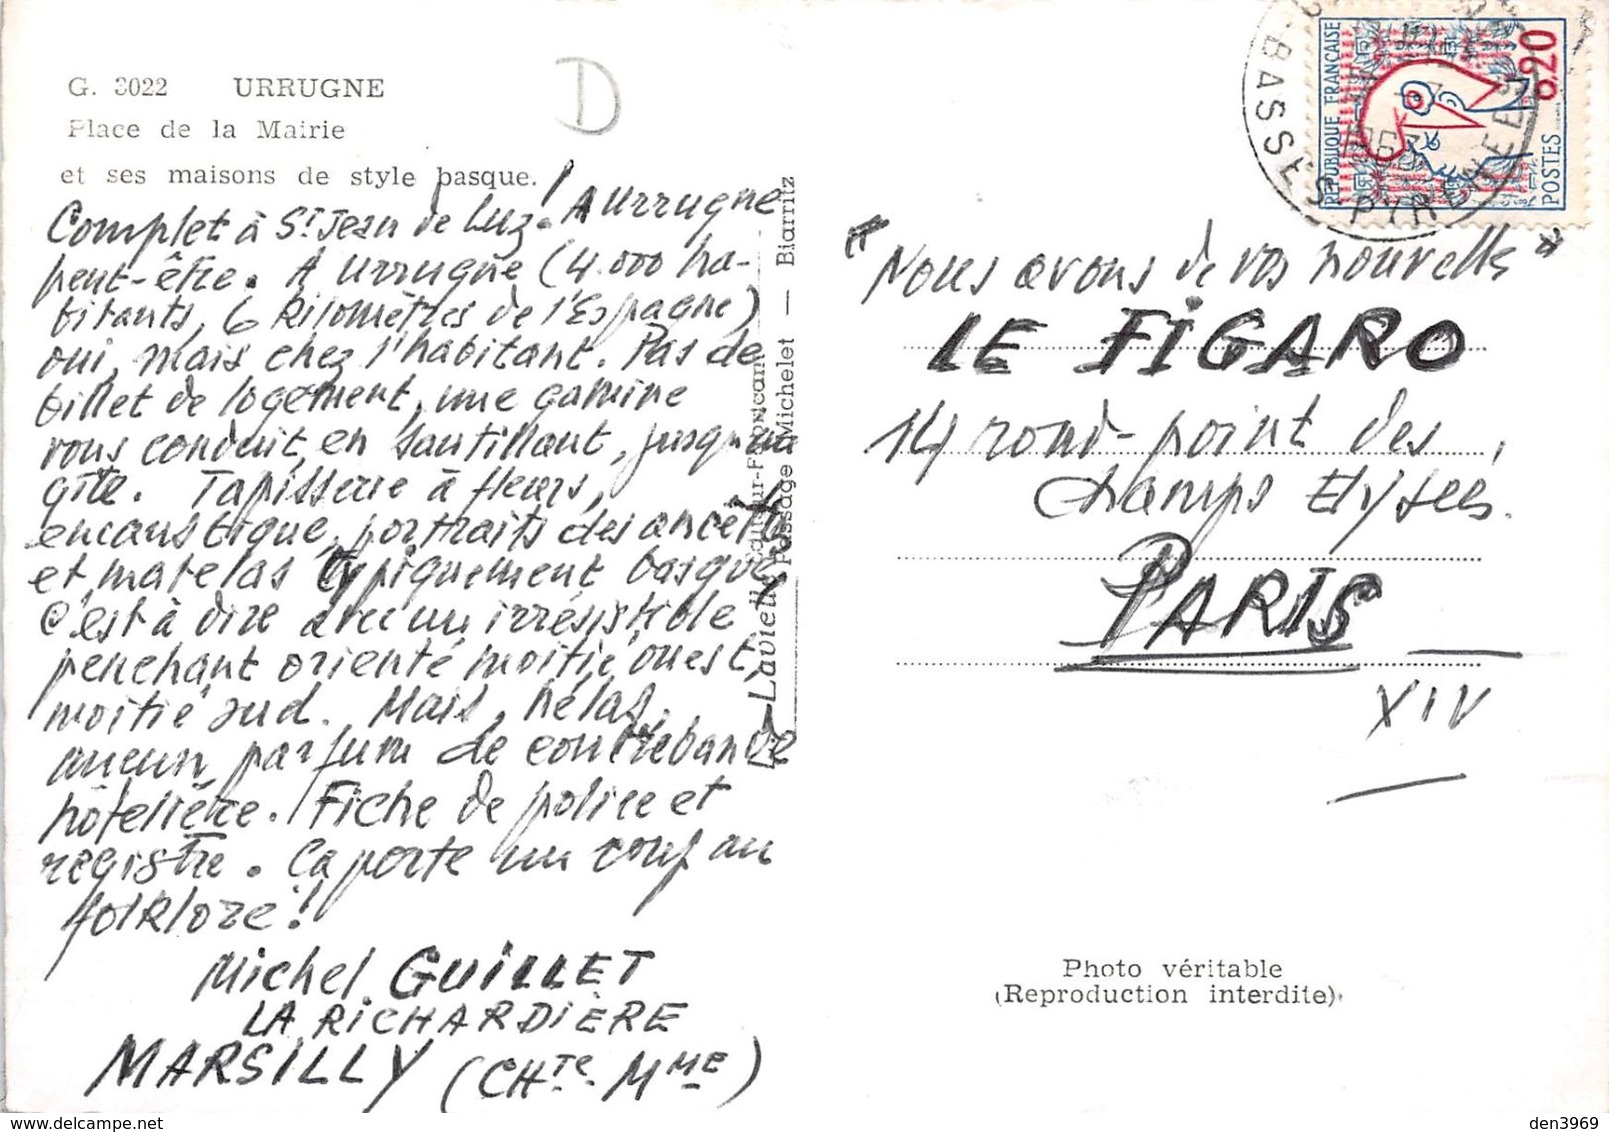 G. 3022 URRUGNE
Place de la Mairie
et ses maisons de style basque.
D
Complet à St Jean de Luz! A Urrugne
peut-être. A Urrugne (4.000 ha-
bitants, 6 Kilomètres de l'Espagne)
oui, mais chez l'habitant. Pas de
billet de logement, une gamine
vous conduit, en sautillant, jusqu'au
gîte. Tapisserie à fleurs,
encaustique, portraits des ancêtres
et matelas typiquement basque
C'est à dire avec un irrésistible
penchant orienté moitié ouest,
moitié sud. Mais, hélas,
aucun parfum de contrebande
hôtelière. Fiche de police et
registre. Ça porte un coup au
folklore!
Michel GUILLET
LA RICHARDIÈRE
MARSILLY (CHTe-MME)
Passage Michelet — Biarritz
REPUBLIQUE FRANÇAISE
0,20
POSTES
BASSES PYRENEES
"Nous avons de vos nouvelles"
LE FIGARO
14 rond-point des
Champs Elysées.
PARIS
XIV
Photo véritable
(Reproduction interdite)
den3969